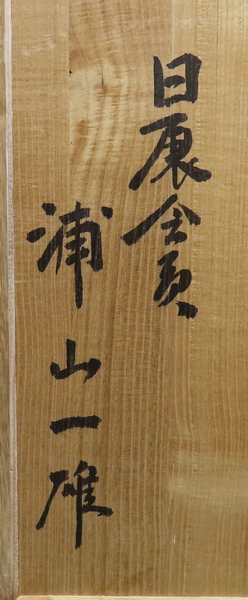 日展会員
浦山一雄